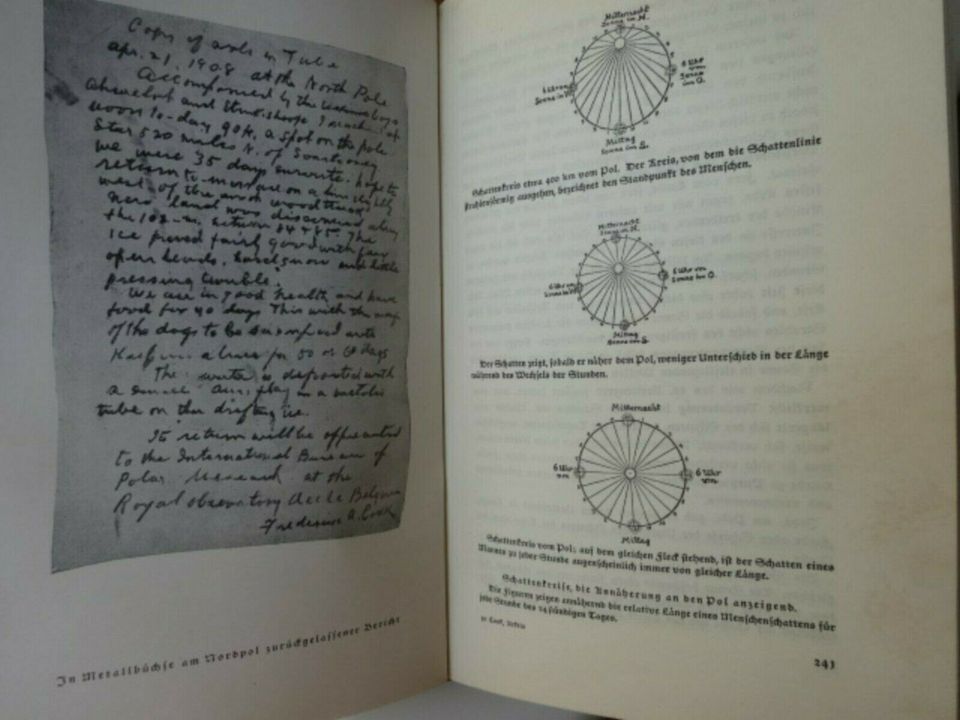 Copy of note in Tube
Apr. 21, 1908 at the North Pole
Accompanied by the Eskimo boys
Ahwelah and Etukishook I reached at
noon to-day 90 N. a spot on the polar
star 520 miles N. of Svartevoeg
we were 35 days enroute. Hope to
return to-morrow on a line slightly
west of the
New land was discovered along
the 102 m. between 84 & 85. The
ice proved fairly good with few
open leads. hard snow and little
pressure trouble.
We are in good health, and have
food for 40 days. This with the meat
of the dogs to be sacrificed will
Keep us alive for 50 or 60 days
The is deposited with
a small flag in a metallic
tube on the drifting ice.
Its return will be appreciated
to the International Bureau of
Polar Research at the
Royal observatory Uccle Belgium
Frederick A. Cook
In Metallbüchse am Nordpol zurückgelassener Bericht
Mitternacht
Sonne im N.
6 Uhr vm
Sonne im O.
6 Uhr nm
Sonne im W.
Mittag
Sonne im S.
Schattenkreis etwa 400 km vom Pol. Der Kreis, von dem die Schattenlinie
strahlenförmig ausgehen, bezeichnet den Standpunkt des Menschen.
Mitternacht
Sonne im N.
6 Uhr vm
Sonne im O.
6 Uhr nm
Sonne im W.
Mittag
Sonne im S.
Der Schatten zeigt, sobald er näher dem Pol, weniger Unterschied in der Länge
während des Wechsels der Stunden.
Mitternacht
6 Uhr
nm
6 Uhr
vm
Mittag
Schattenkreis vom Pol; auf dem gleichen Fleck stehend, ist der Schatten eines
Mannes zu jeder Stunde augenscheinlich immer von gleicher Länge.
Schattenkreise, die Annäherung an den Pol anzeigend.
Die Figuren zeigen annähernd die relative Länge eines Menschenschattens für
jede Stunde des 24 stündigen Tages.
16 Cook, Arktis
241